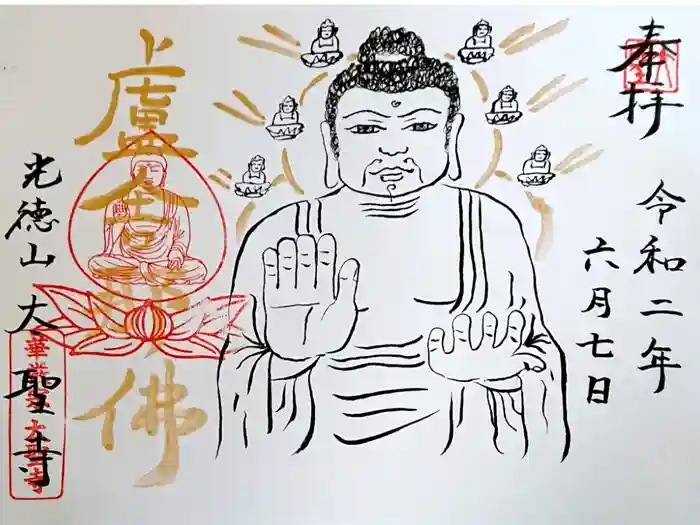 奉拝
令和二年
六月七日
盧舎那佛
光徳山 大聖寺
華厳宗大聖寺